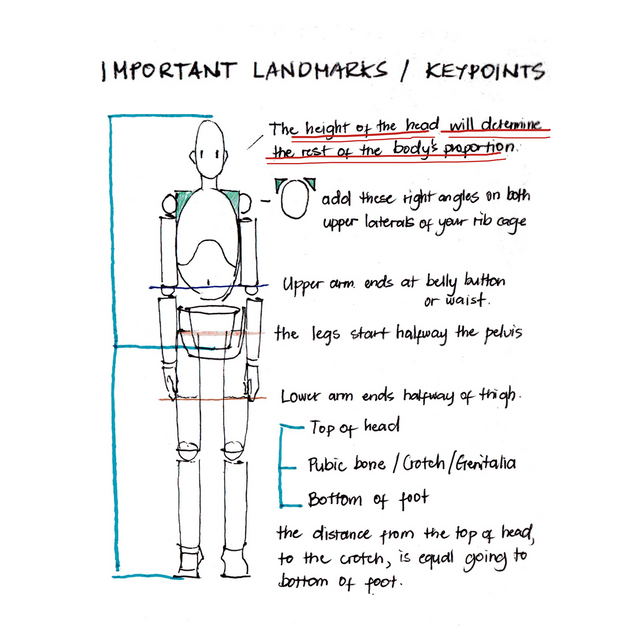 IMPORTANT LANDMARKS / KEYPOINTS
The height of the head will determine
the rest of the body's proportion.
add these right angles on both
upper laterals of your rib cage
Upper arm ends at belly button
or waist.
the legs start halfway the pelvis
Lower arm ends halfway of thigh.
Top of head
Pubic bone / Crotch / Genitalia
Bottom of foot
the distance from the top of head,
to the crotch, is equal going to
bottom of foot.